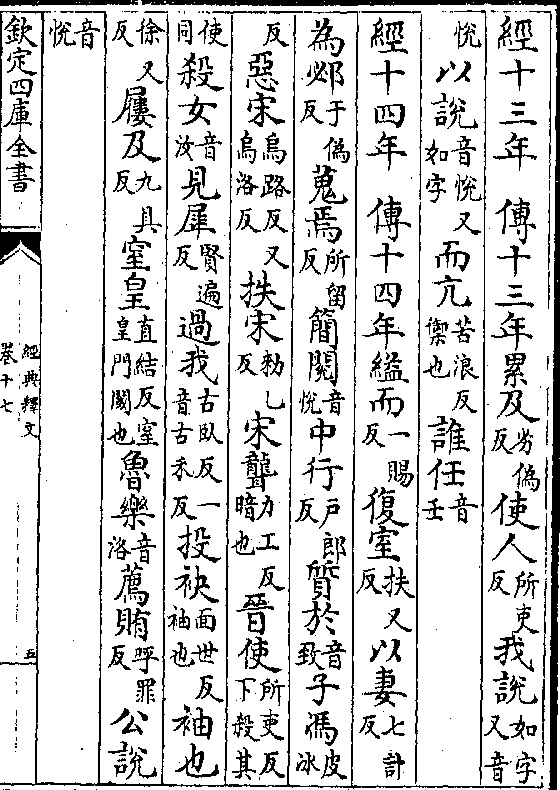 經十三年　傳十三年累及劣偽反使人所吏反我說如字又音
悅以說音悅又如字而亢苦浪反禦也誰任音壬
經十四年　傳十四年縊而一賜反復室扶又反以妻七計反
為邲于偽反蒐焉所留反簡閱音悅中行户郎反質於音致子馮皮冰
反惡宋烏路反又烏洛反抶宋勑乙反宋聾力工反暗也晉使所吏反下殺其
使同殺女音汝見犀賢遍反過我古臥反一音古禾反投袂面世反袖也袖也
徐又反屨及九具反窒皇直結反窒皇門闕也魯樂音洛薦賄呼罪反公說
音悅
欽定四庫全書
經典釋文
卷十七
五